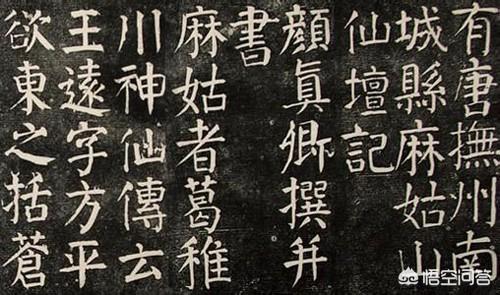 有唐撫州南
城縣麻姑山
仙壇記
顏真卿撰并
書
麻姑者葛稚
川神仙傳云
王遠字方平
欲東之括蒼
悟空问答